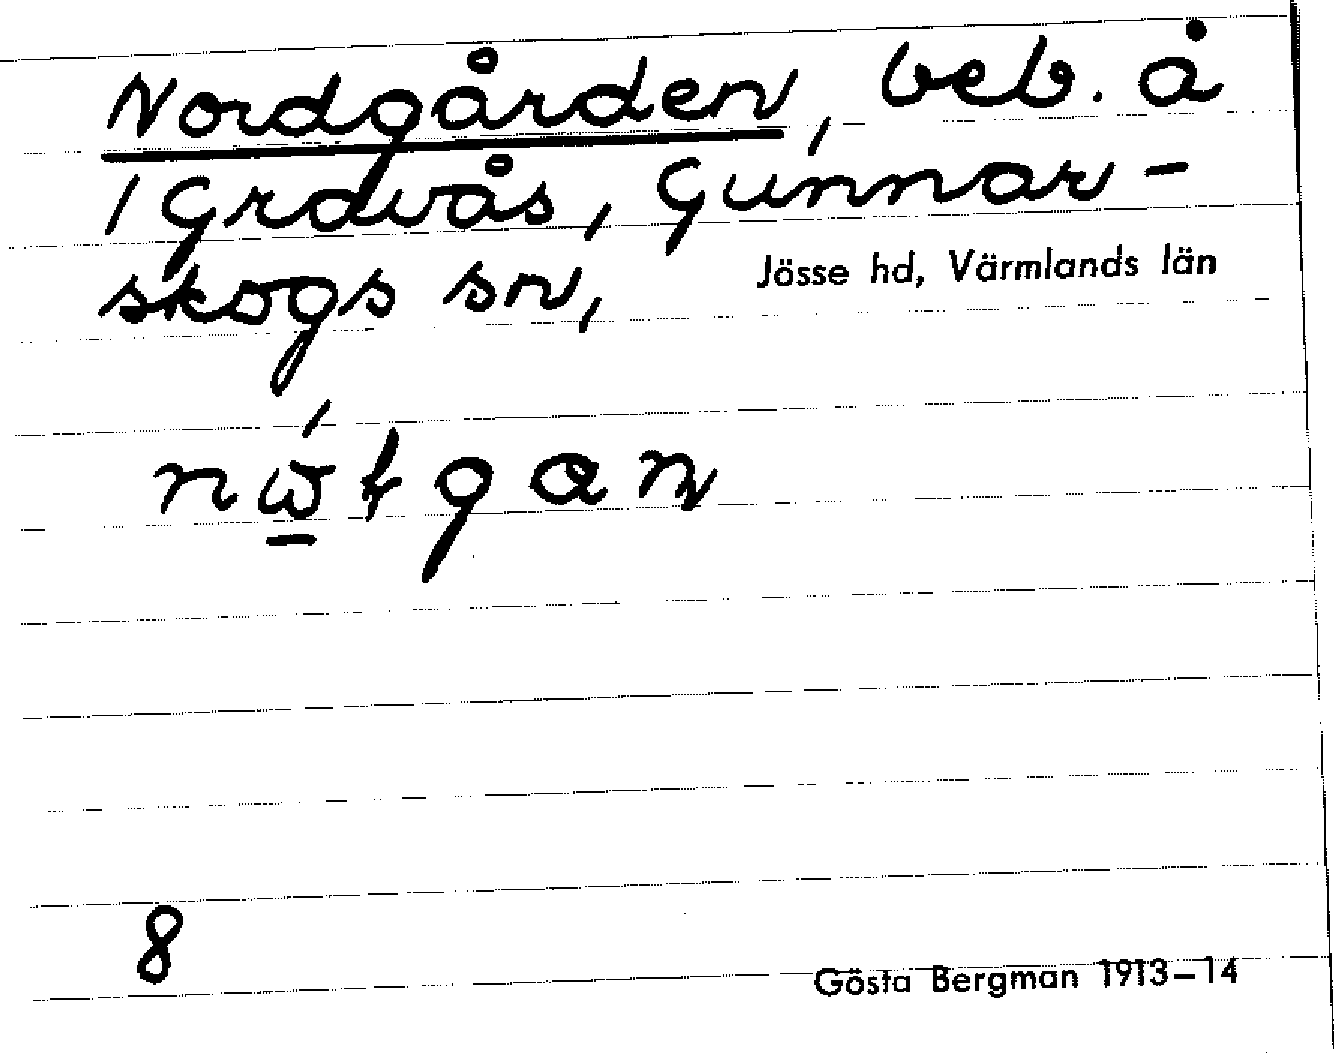 Nordgården, beb. å
1 Gravås, Gunnar-
skogs sn, Jösse hd, Värmlands län
8
Gösta Bergman 1913–14